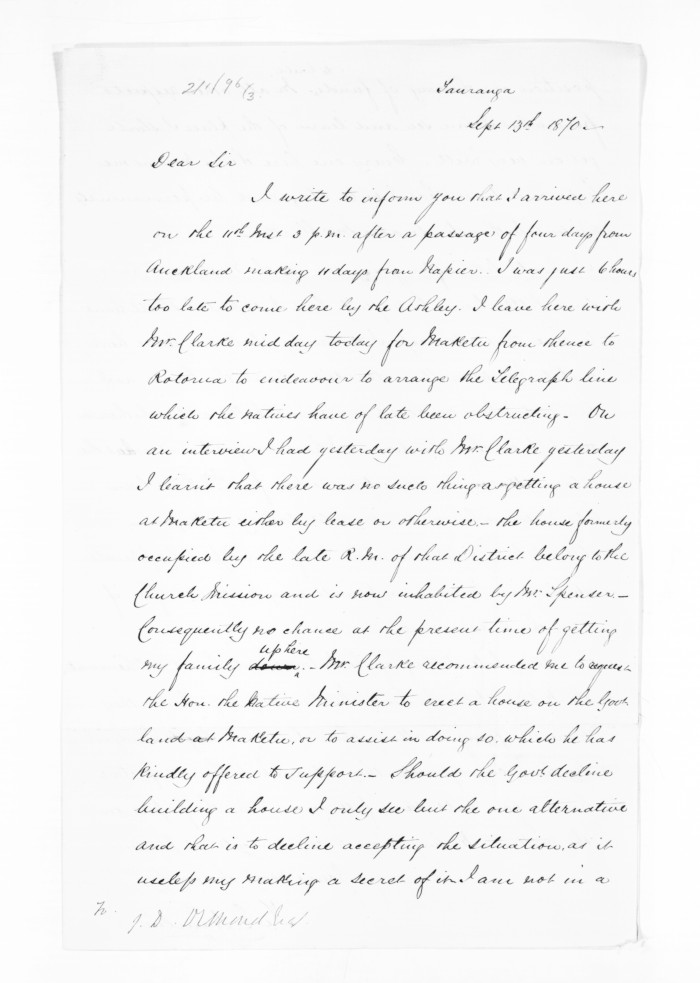 Tauranga
Sept 13th 1870
Dear Sir
I write to inform you that I arrived here
on the 11th Inst 3 p.m. after a passage of four days from
Auckland making 11 days from Napier. I was just 6 hours
too late to come here by the Ashley. I leave here with
Mr. Clarke mid day today for Maketu from thence to
Rotorua to endeavour to arrange the Telegraph line
which the natives have of late been obstructing - On
an interview I had yesterday with Mr. Clarke yesterday
I learnt that there was no such thing as getting a house
at Maketu either by lease or otherwise - the house formerly
occupied by the late R.M. of that District belong to the
Church Mission and is now inhabited by Mr. Spenser -
Consequently no chance at the present time of getting
up here
my family down. - Mr. Clarke recommended me to request
the Hon. the Native Minister to erect a house on the Govt
land at Maketu, or to assist in doing so, which he has
kindly offered to support. - Should the Govt decline
building a house I only see but the one alternative
and that is to decline accepting the situation, as it
useless my making a secret of it I am not in a
J. D. Ormond Esq